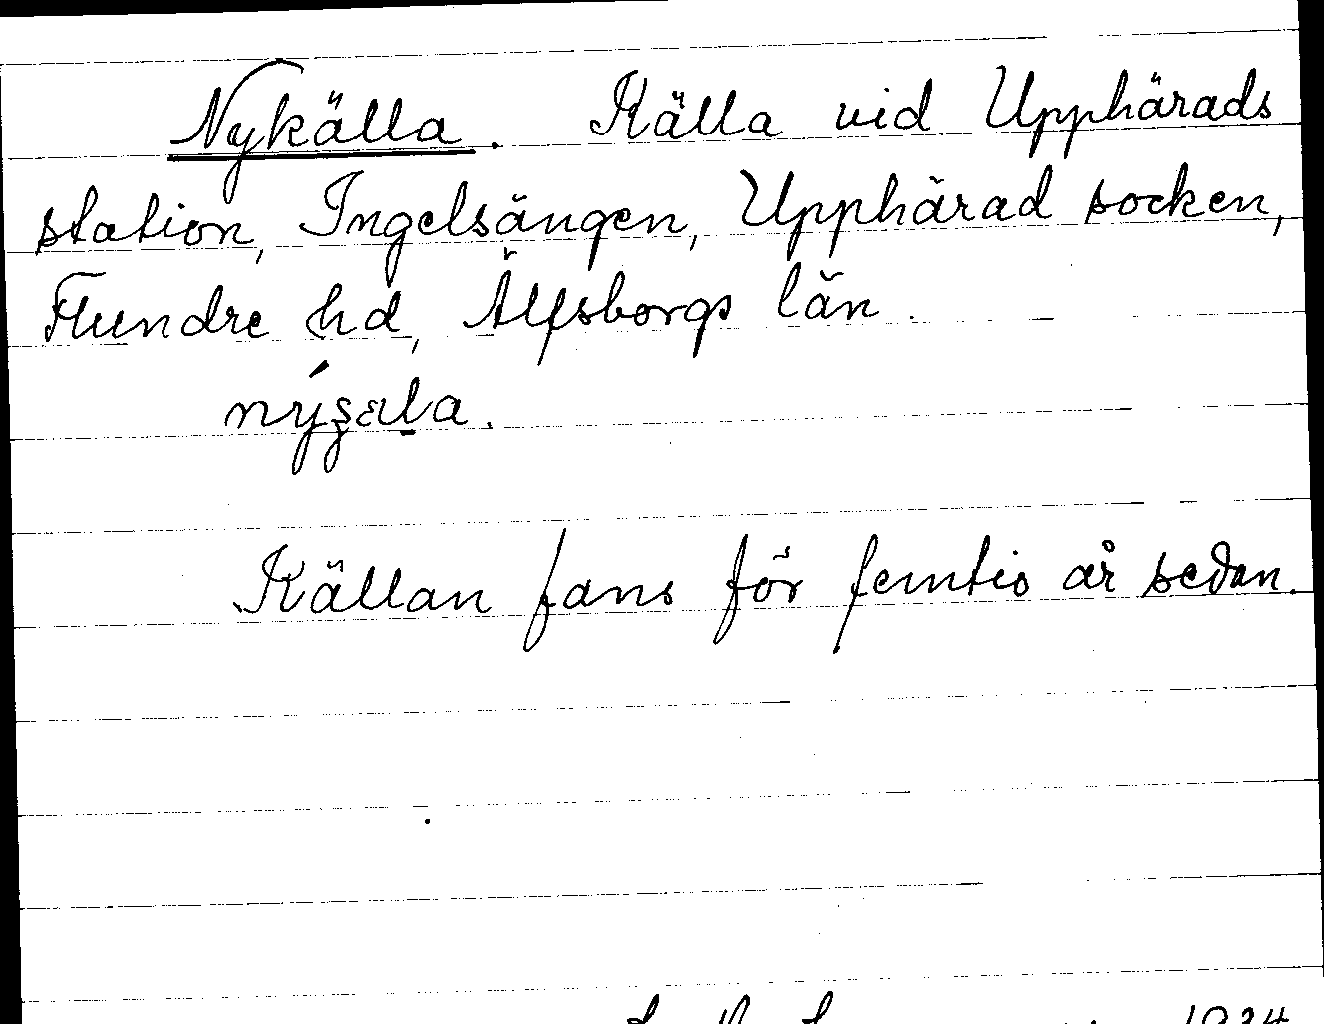 Nykälla. Källa vid Upphärads
station, Ingelsängen, Upphärad socken,
Flundre hd, Älfsborgs län.
Källan fans för femtio år sedan.
1934